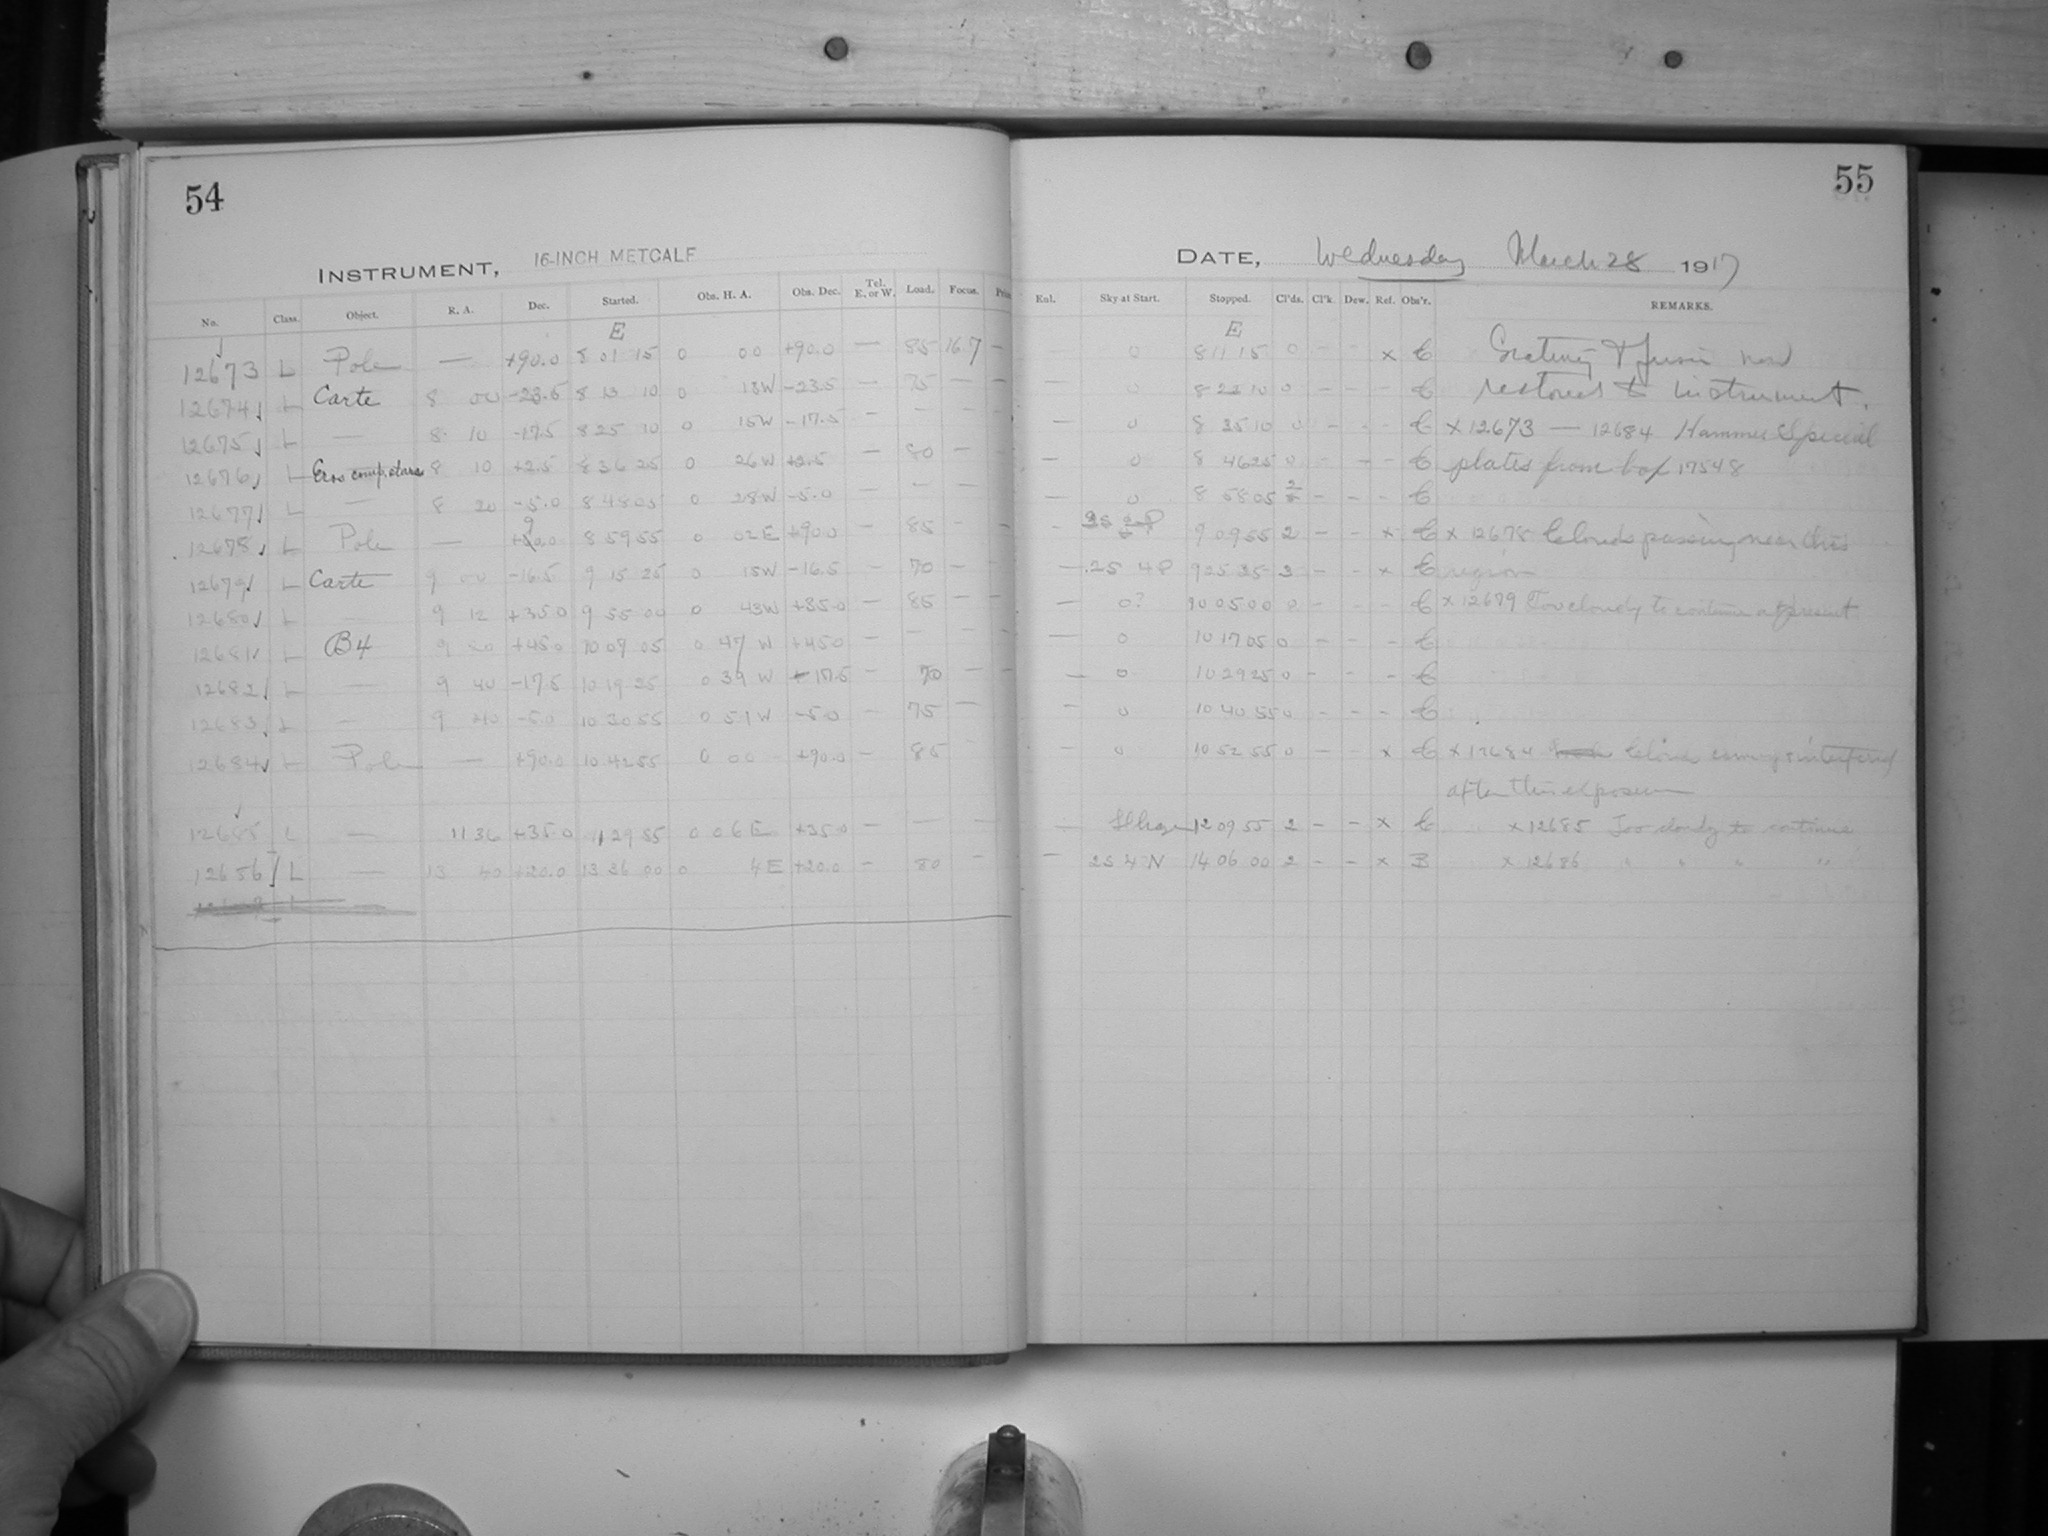 54
INSTRUMENT, 16-INCH METCALF
No. Class. Object. R. A. Dec. Started. Obs. H. A. Obs. Dec. Tel. E. or W. Load. Focus.
E
12673 L Pole — +90.0 8 01 15 0 00 +90.0 — 85 16.7 —
12674 L Carte 8 00 -23.5 8 13 10 0 13W -23.5 — 75 — —
12675 L — 8 10 -17.5 8 25 10 0 15W -17.5 — — — —
12676 L Eros comp. stars 8 10 +2.5 8 36 25 0 26W +2.5 — 80 — —
12677 L — 8 20 -5.0 8 48 05 0 28W -5.0 — — —
12678 L Pole — +90.0 8 59 55 0 02E +90.0 — 85 — —
12679 L Carte 9 00 -16.5 9 15 25 0 15W -16.5 — 70 — —
12680 L — 9 12 +35.0 9 55 00 0 43W +35.0 — 85 — —
12681 L B4 9 20 +45.0 10 07 05 0 47 W +45.0 — — — —
12682 L — 9 40 -17.5 10 19 25 0 39 W -17.5 — 70 — —
12683 L — 9 40 -5.0 10 30 55 0 51 W -5.0 — 75 —
12684 L Pole — +90.0 10 42 55 0 00 +90.0 — 85
12685 L — 11 36 +35.0 11 29 55 0 06E +35.0 — — —
12656 L — 13 40 +20.0 13 36 00 0 4E +20.0 — 80 —
55
DATE, Wednesday March 28 1917
Eol. Sky at Start. Stopped. Cl'ds. Cl'k. Dew. Ref. Obs'r. REMARKS.
E
0 8 11 15 0 — — x C Grating & prism now
— 0 8 23 10 0 — — — C restored to instrument.
— 0 8 35 10 0 — — — C x 12673 — 12684 Hammer Special
— 0 8 46 25 0 — — C plates from box 17548
— 0 8 58 05 — — — C
9 09 55 2 — — x C x 12678 Clouds passing near this
— 25 4P 9 25 25 3 — — x C region
— 0? 10 05 00 0 — — C x 12679 Too cloudy to continue at present
— 0 10 17 05 0 — — — C
— 0 10 29 25 0 — — C
— 0 10 40 55 0 — — — C
— 0 10 52 55 0 — — x C x 12684 Clouds coming & interfered
after this exposure
— 12 09 55 2 — — x C x 12685 Too cloudy to continue
— 25 4 N 14 06 00 2 — — x B x 12686 " " " "